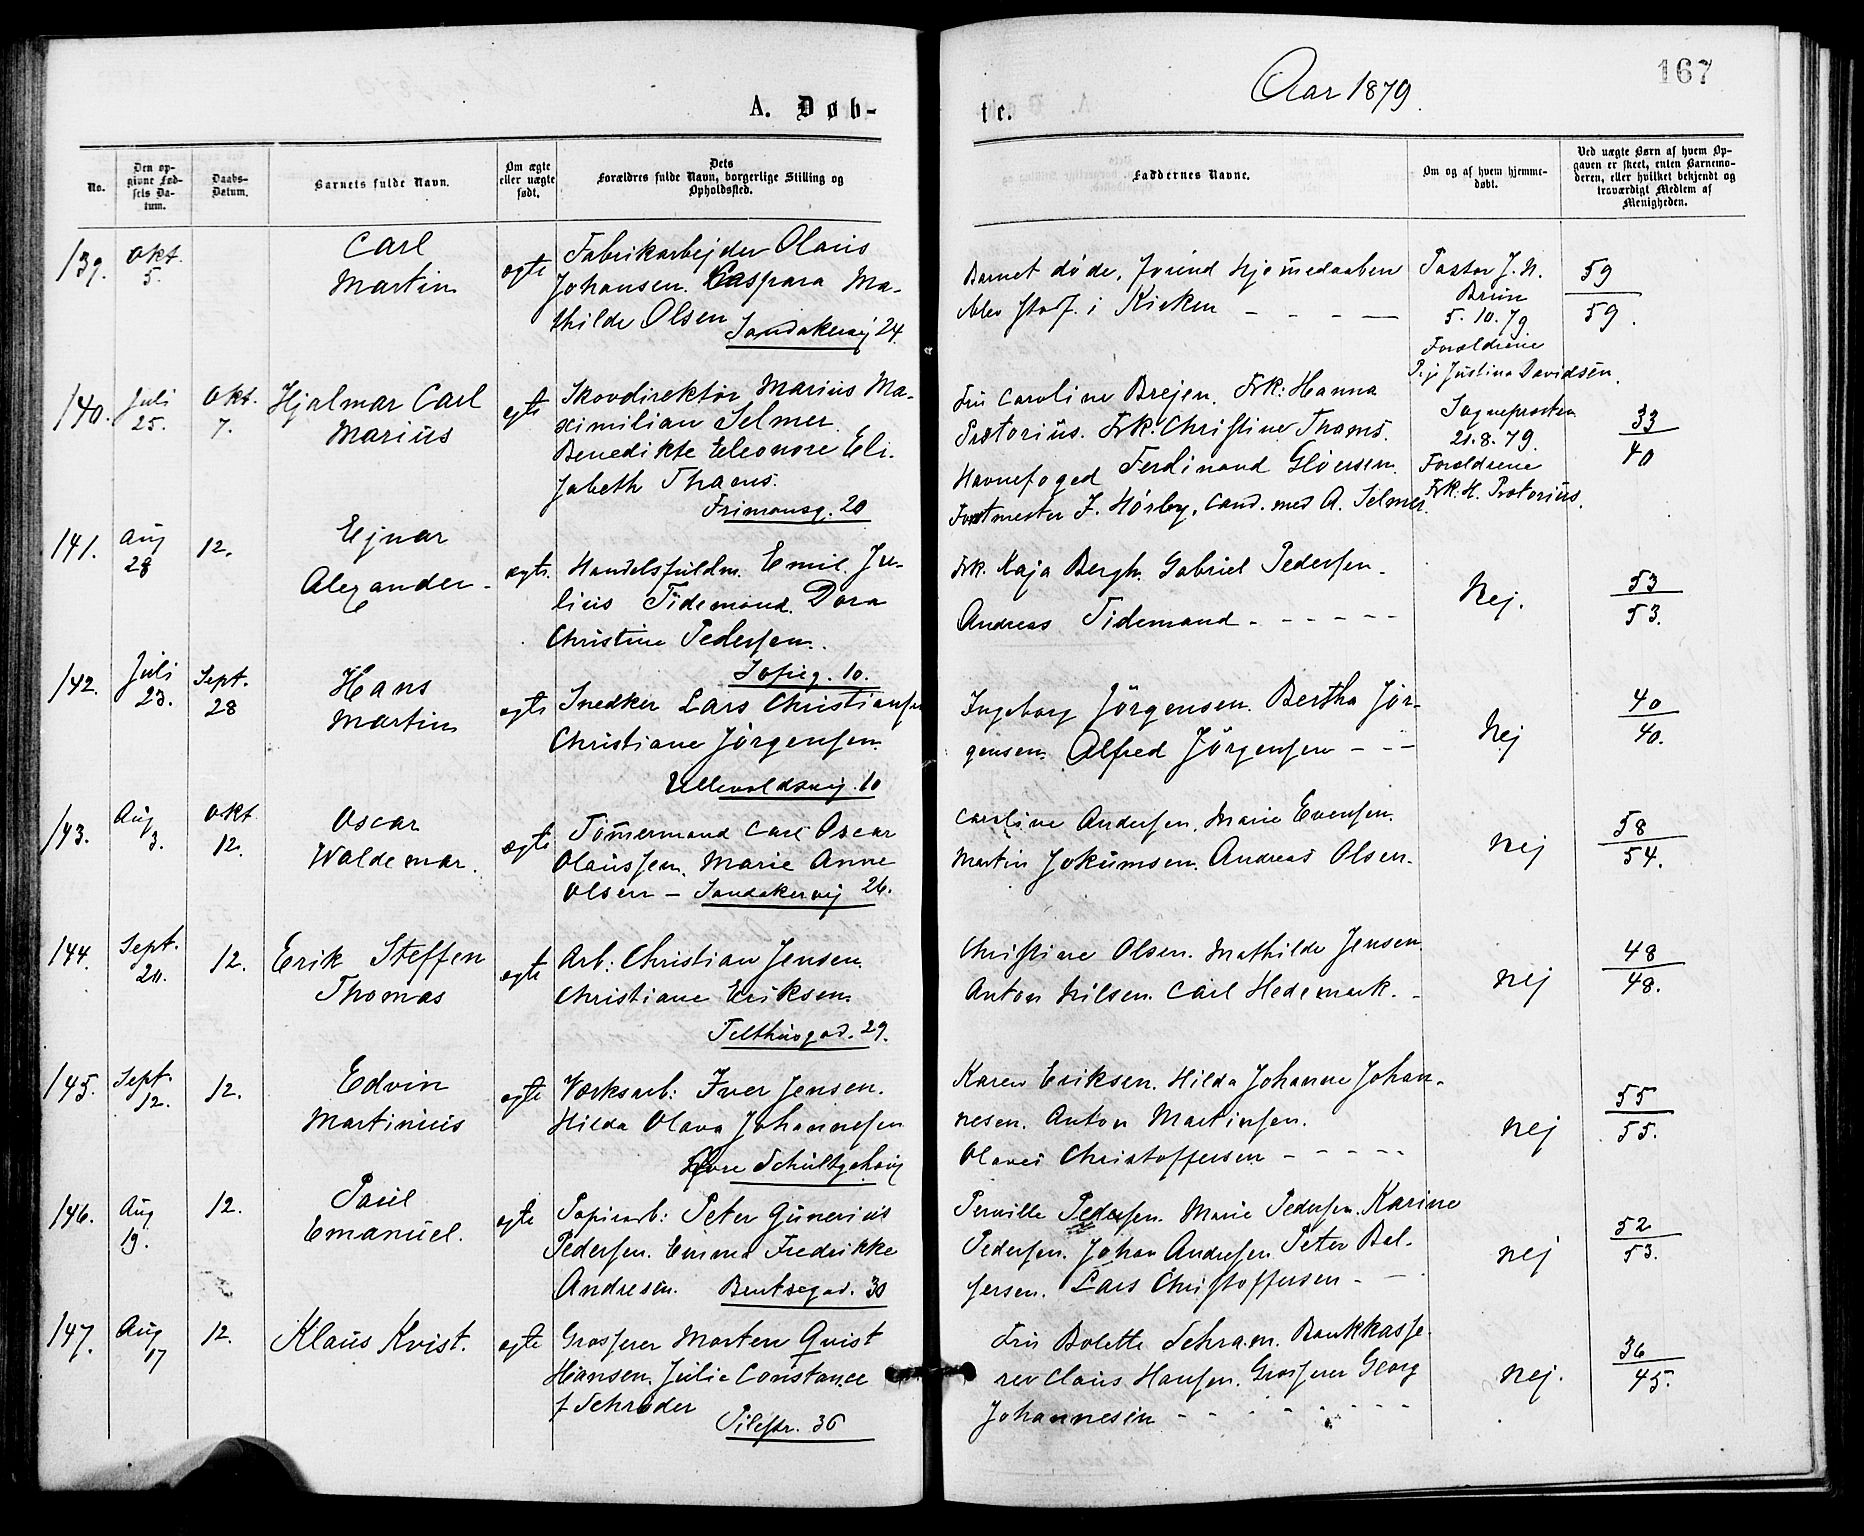 167
Aar 1879.
A. Døb-
te.
No.
Den op-
givne Fød-
sels Da-
tum.
Daabs-
Datum.
Barnets fulde Navn.
Om ægte
eller uægte
født.
Dets
Forældres fulde Navn, borgerlige Stilling og
Opholdssted.
Faddernes Navne.
Om og af hvem hjemme-
døbt.
Ved uægte Børn af hvem Op-
gaven er skeet, enten Barnemo-
deren, eller hvilket bekjendt og
troværdigt Medlem af
Menigheden.
139. Okt. 5. Carl
Martin
ægte
Fabrikarbejder Olaus
Johansen. Caspara Ma-
thilde Olsen
Sandakervej 24.
Barnet døde, forind hjemmedaaben
blev stadf. i Kirken - - - -
Pastor J. N.
Brun
5. 10. 79.
Forældrene
P.je Justina Davidsen.
59
59.
140. Juli 25. Okt. 7. Hjalmar Carl
Marius
ægte
Skovdirektør Marius Ma-
ximilian Selmer.
Benedikte Eleonore Eli-
sabeth Thams.
Frimansg. 20
Fru Caroline Brejen. Frk: Hanna
Prætorius. Frk: Christine Thams.
Havnefoged Ferdinand Gløersen.
Forstmester F. Hørby. Cand. med A. Selmer.
Sogneprsten
21. 8. 79.
Forældrene
Frk. H. Prætorius.
33
40
141. Aug 28 12. Ejnar
Alexander -
ægte.
Handelsfuldm. Emil Ju-
lius Tidemand. Dora
Christine Pedersen.
Sofieg. 10.
Frk. Kaja Bergh. Gabriel Pedersen.
Andreas Tidemand - - - - - -
Nej.
53
53.
142. Juli 23. Sept. 28 Hans
Martin
ægte
Snedker Lars Christiansen
Christiane Jørgensen.
Ullevoldsvej. 10
Ingeborg Jørgensen. Bertha Jør-
gensen. Alfred Jørgensen - - -
Nej
40
40.
143. Aug 3. Okt 12. Oscar
Waldemar.
ægte
Tømmermand Carl Oscar
Olaussen. Marie Anne
Olsen - Sandakervej 26.
Caroline Andersen. Marie Evensen.
Martin Jokumsen. Andreas Olsen.
Nej
58
54.
144. Sept. 20. 12. Erik Steffen
Thomas
ægte
Arb: Christian Jensen.
Christiane Eriksen.
Telthusgad. 29.
Christine Olsen. Mathilde Jensen.
Anton Nilsen. Carl Hedemark. -
Nej
48
48.
145. Sept. 12. 12. Edvin
Martinius
ægte
Værksarb: Iver Jensen.
Hilda Olava Johannesen
Øvre Schultzehavg
Karen Eriksen. Hilda Johanne Johan-
nesen. Anton Martinsen.
Olaves Christoffersen - - - - -
Nej
55
55.
146. Aug 19. 12. Paul
Emanuel.
ægte
Papirarb: Peter Gunerius
Pedersen. Emma Fredrikke
Andresen. Bentsegad. 30
Pernille Pedersen. Marie Pedersen. Karine
Pedersen. Johan Andresen. Peter Bal-
sersen. Lars Christoffersen - -
Nej
52
53.
147. Aug 17 12. Klaus Kvist.
ægte
Grosserer Morten Qvist
Hansen. Julie Constance
f Schrøder
Pilestr. 36
Fru Bolette Schram. Bankkasse-
rer Claus Hansen. Grosserer Georg
Johannesen - - - - - - -
Nej.
36
45.